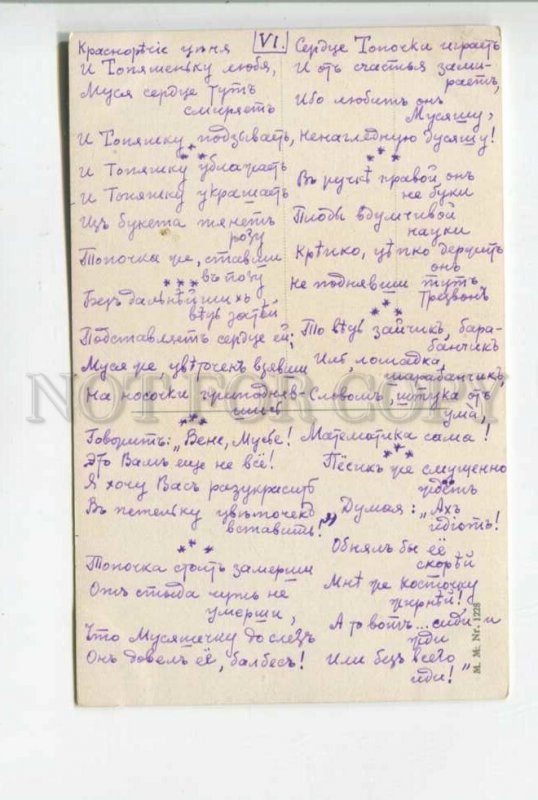 VI.
Краснорѣчіе цѣня
И Топяшеньку любя,
Муся сердце тутъ
смиряетъ
И Топяшку подзываетъ,
***
И Топяшку ублажать
И Топяшку украшать
Изъ букета тянетъ
розу
Топочка же, ставши
въ позу
***
Безъ дальнѣйшихъ
всѣхъ затѣй
Подставляетъ сердце ей;
Муся же, цвѣточекъ взявши
На носочки приподняв-
шись
***
Говоритъ: „Вене, Мусье!
Это Вамъ еще не всё!
Я хочу Васъ разукрасить
Въ петельку цвѣточекъ
вставить!"
***
Топочка стоитъ замерши
Отъ стыда чуть не
умерши,
Что Мусяшечку до слезъ
Онъ довелъ её, балбесъ!
Сердце Топочки играетъ
И отъ счастья зами-
раетъ,
Ибо любитъ онъ
Мусяшу,
Ненаглядную дусяшу!
***
Въ ручкѣ правой онъ
не буки
Плоды вдумчивой
науки
Крѣпко, цѣпко держитъ
онъ
Не поднявши тутъ
трезвонъ
***
То вѣдь зайчикъ, бара-
банчикъ
Иль лошадка,
шарабанчикъ,
Словомъ, штука отъ
ума,
Математика сама!
***
Пёсикъ же смущенно
ждетъ
Думая: „Ахъ
идіотъ!
Обнялъ бы её
скорѣй
Мнѣ же косточку
жирнѣй!
А то вотъ... сиди и
жди
Или безъ всего
иди!"
M. M. Nr. 1228
NOT FOR COPY